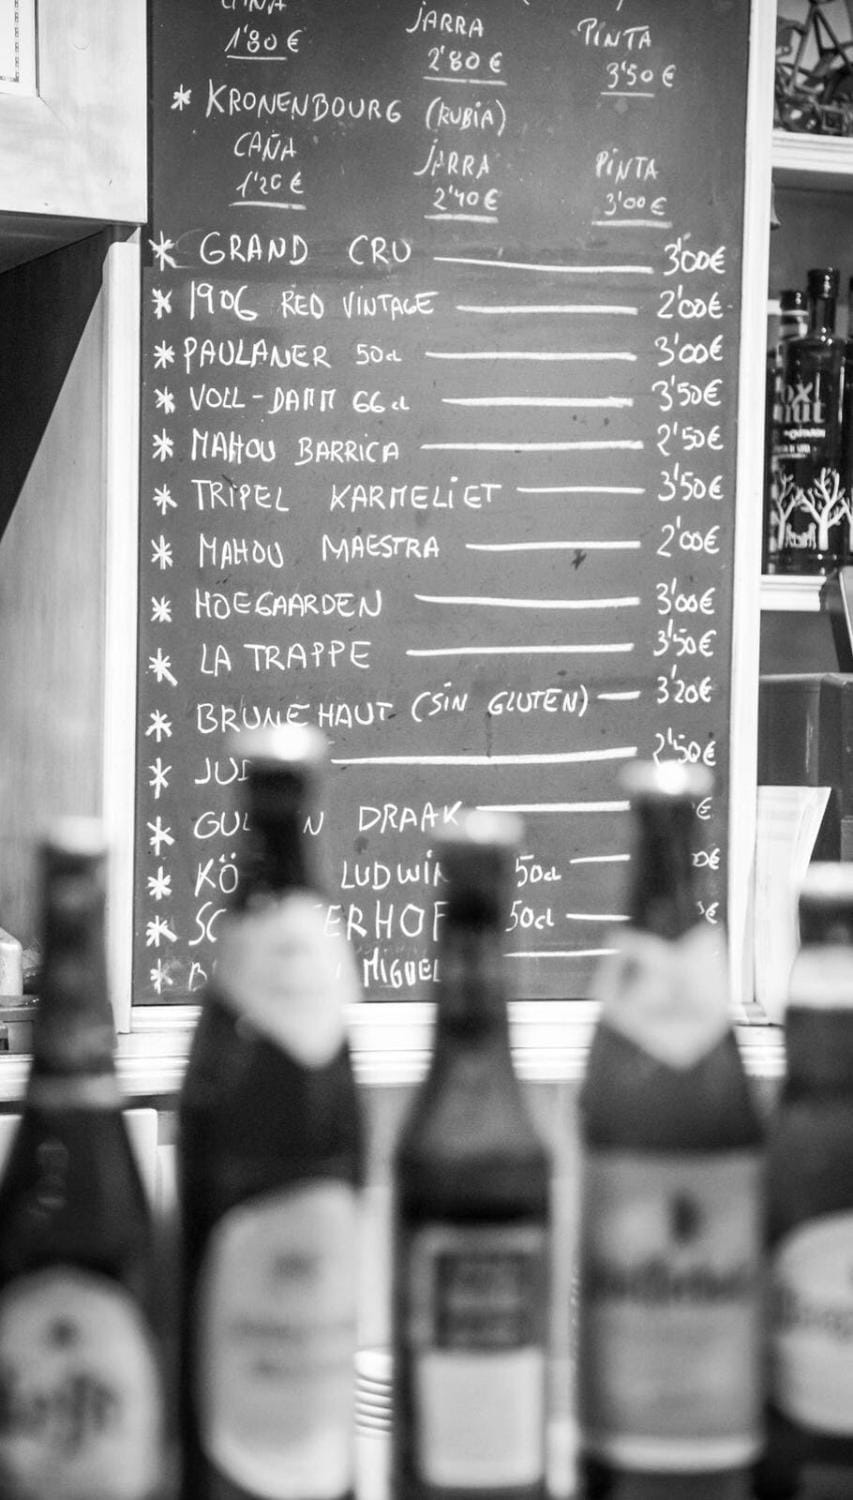 JARRA PINTA
1'80 € 2'80 € 3'50 €
* KRONENBOURG (RUBIA)
CAÑA JARRA PINTA
1'20 € 2'40 € 3'00 €
* GRAND CRU 3'00€
* 1906 RED VINTAGE 2'00€
* PAULANER 50cl 3'00€
* VOLL-DAMM 66 cl 3'50€
* MAHOU BARRICA 2'50€
* TRIPEL KARMELIET 3'50€
* MAHOU MAESTRA 2'00€
* HOEGAARDEN 3'00€
* LA TRAPPE 3'50€
* BRUNEHAUT (SIN GLUTEN) 3'20€
* 2'50€
* DRAAK €
* 50cl €
* 50cl €
* MIGUEL